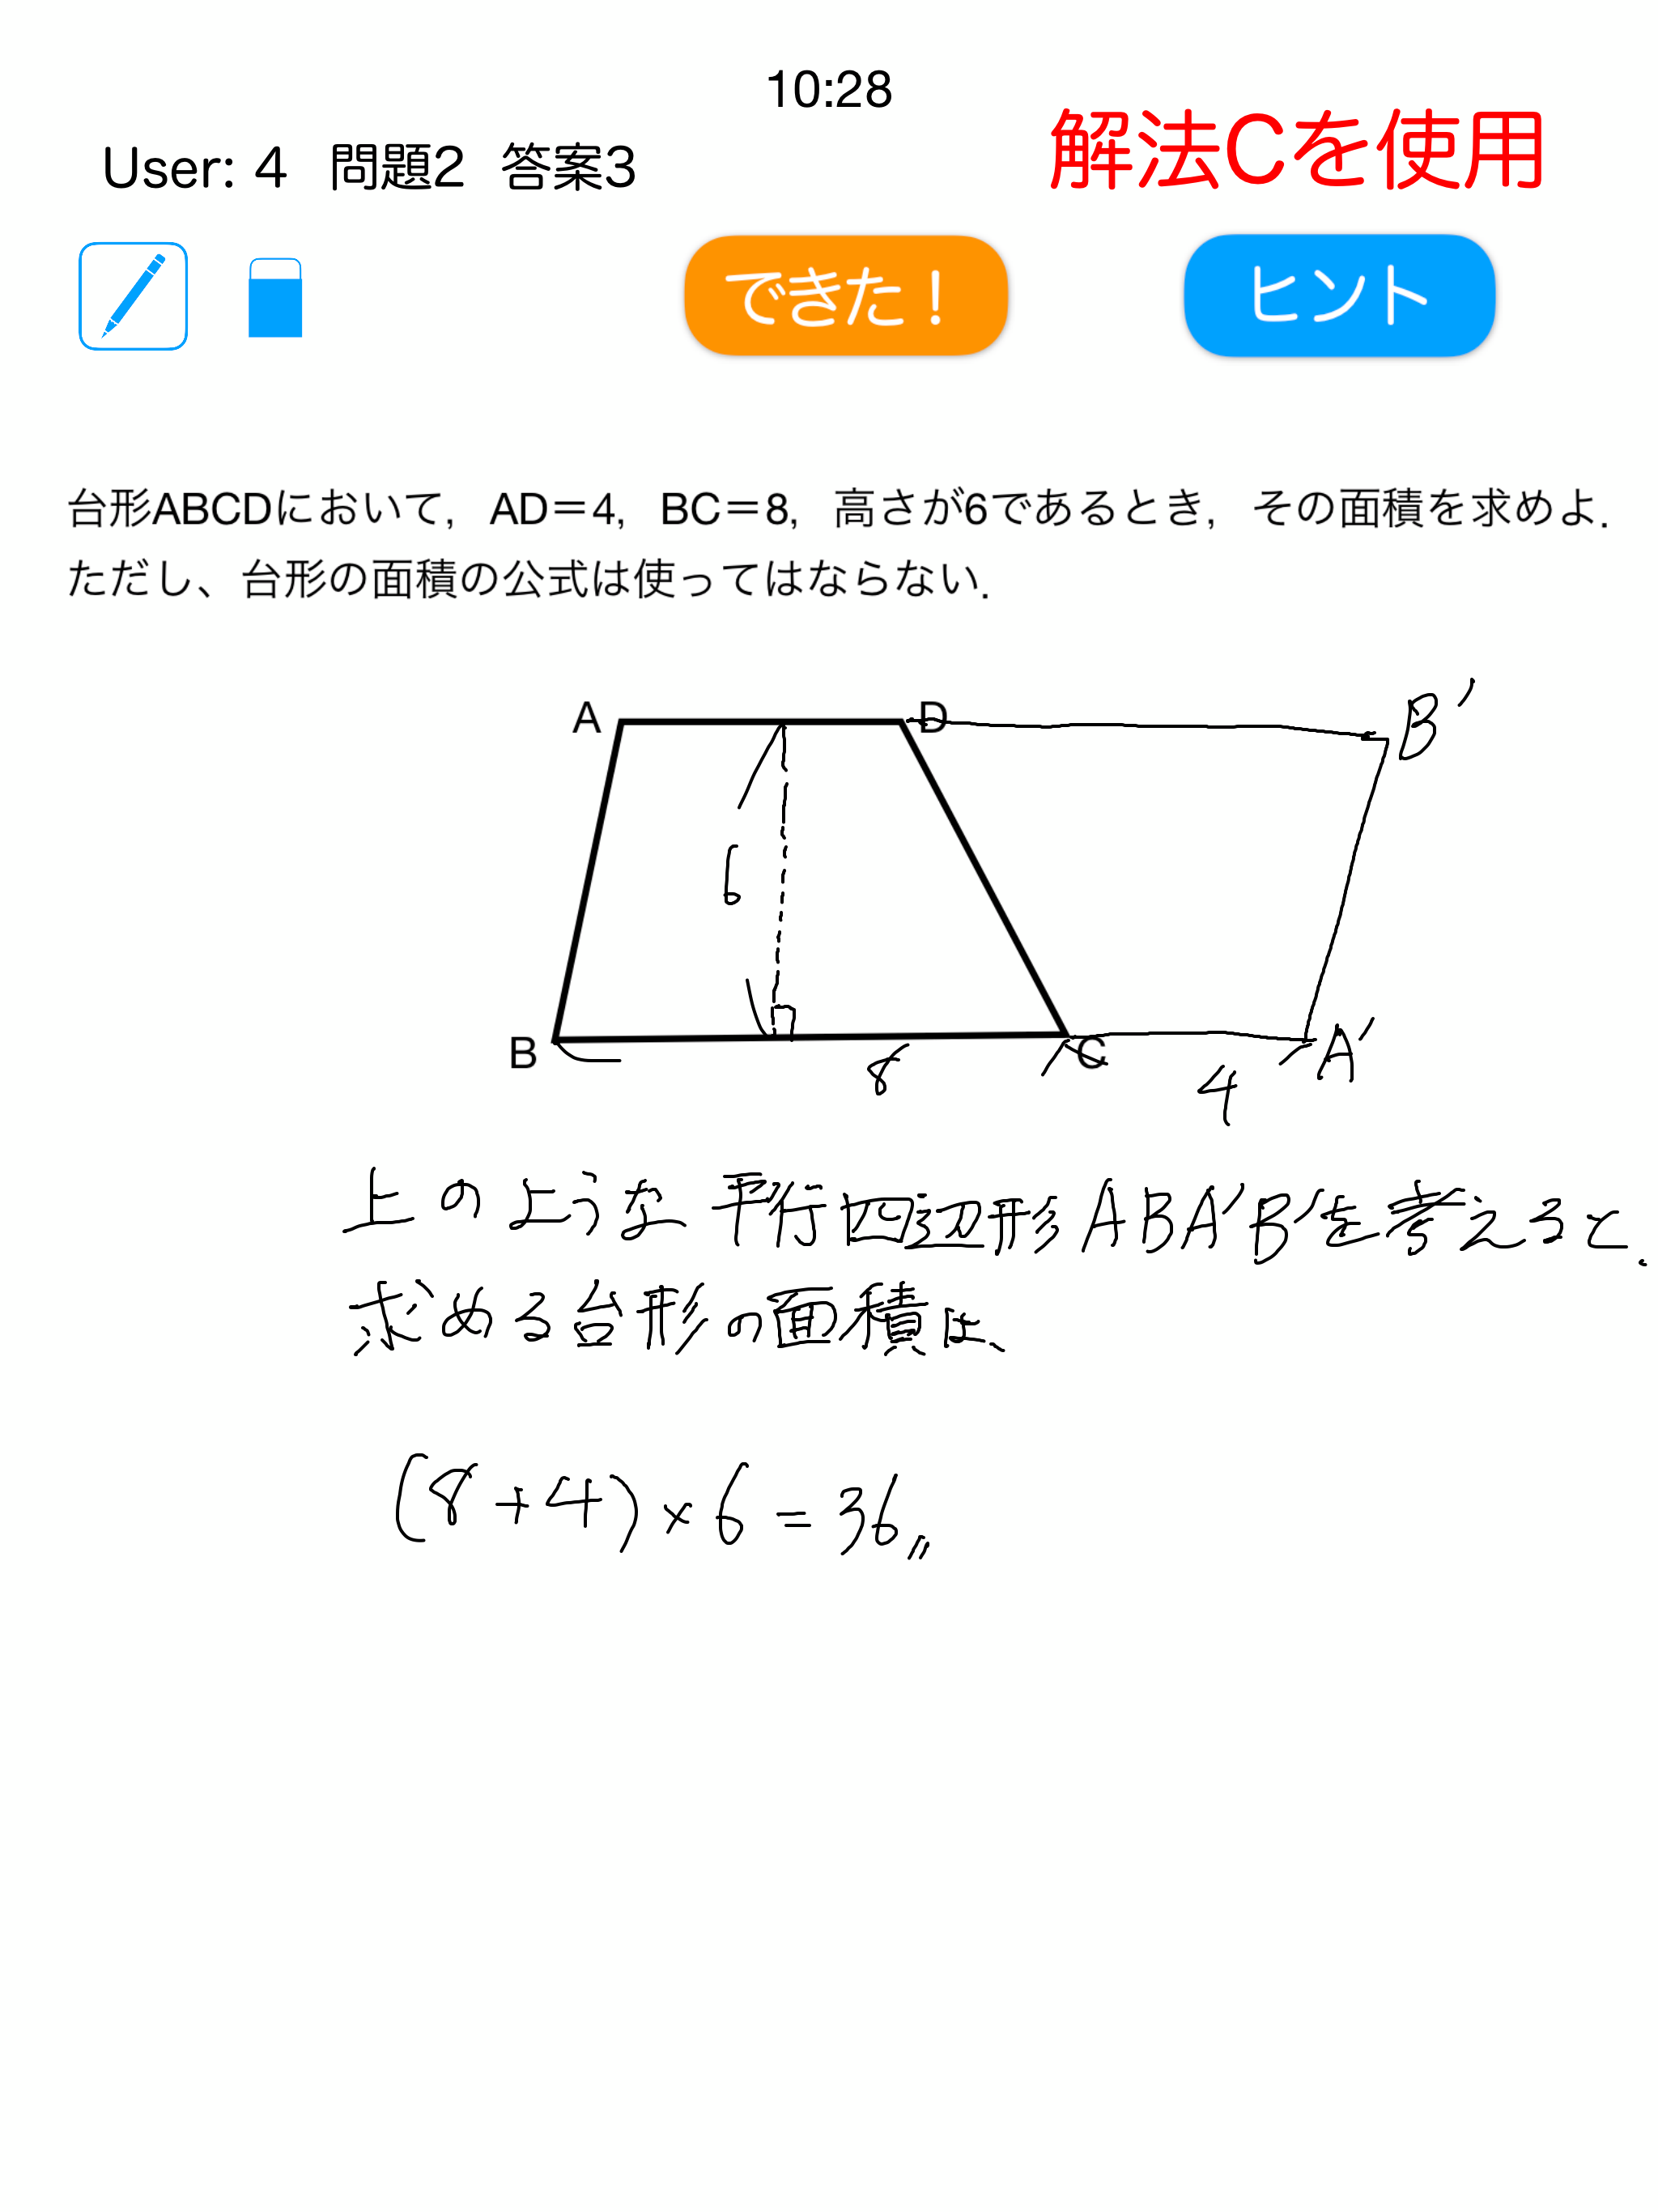 10:28
解法Cを使用
User: 4 問題2 答案3
できた！
ヒント
台形ABCDにおいて，AD＝4，BC＝8，高さが6であるとき，その面積を求めよ．
ただし、台形の面積の公式は使ってはならない．
A
D
B'
6
B
8
C
4
A'
上のような平行四辺形ABA'B'を考えると、
求める台形の面積は、
(8+4)×6=36